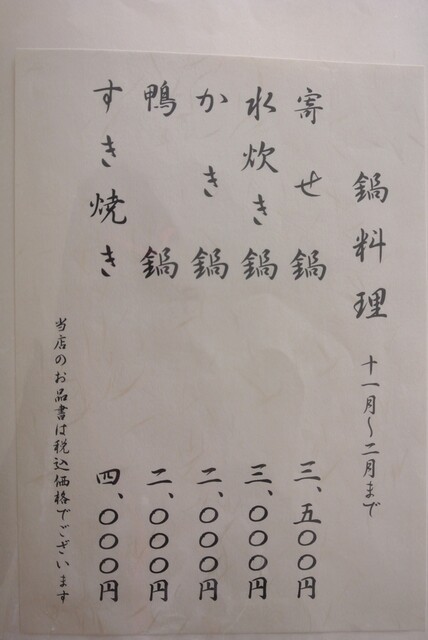 鍋料理 十一月～二月まで
寄せ鍋 三、五〇〇円
水炊き鍋 三、〇〇〇円
かき鍋 二、〇〇〇円
鴨鍋 二、〇〇〇円
すき焼き 四、〇〇〇円
当店のお品書は税込価格でございます